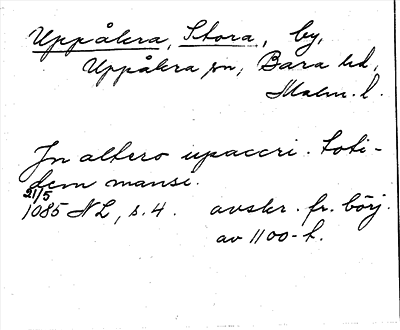 Uppåkra, Stora, by,
Uppåkra sn, Bara hd,
Malm. l.
Jn altero upaccri. toti-
dem mansi.
21/5
1085 NL, s. 4. avskr. fr. börj.
av 1100-t.